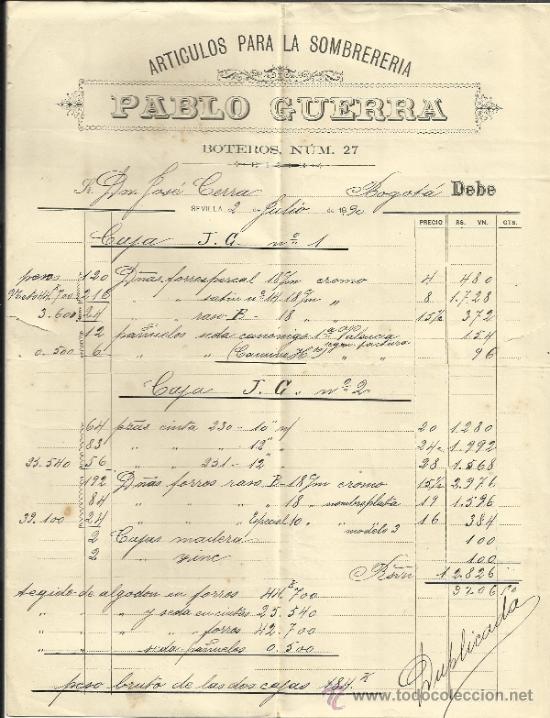 ARTICULOS PARA LA SOMBRERERIA
PABLO GUERRA
BOTEROS, NÚM. 27
Sr. Dn. José Cerra Bogotá Debe
SEVILLA 2 DE Julio DE 1890
PRECIO RS. VN. CTS.
Caja J. G. nº 1
120 Dnas forros percal 18 c/m cromo 4 480
44,700 216 " satin nº 14. 18 c/m " 8 1.728
3.600 24 " " raso B - 18 " 15½ 372
12 pañuelos seda 154
0.500 6 " " " " 96
Caja J. G. nº 2
64 pzas cinta 230 - 10" 20 1.280
83 " " " 12" 24 1.992
25.540 56 " " 231 - 12" 28 1.568
192 Dnas forros raso B - 18 c/m cromo 15½ 2.976
84 " " " " 18 " 19 1.596
39.100 24 " " " Especial 10 " modelo 3 16 384
2 Cajas madera 100
2 " zinc 100
Rvn 12.826
3206 50
tegido de algodon en forros 44.700
" y seda en cintas 25.540
" " " forros 42.700
" seda pañuelos 0.500
peso bruto de las dos cajas 184 K
Duplicada
www.todocoleccion.net